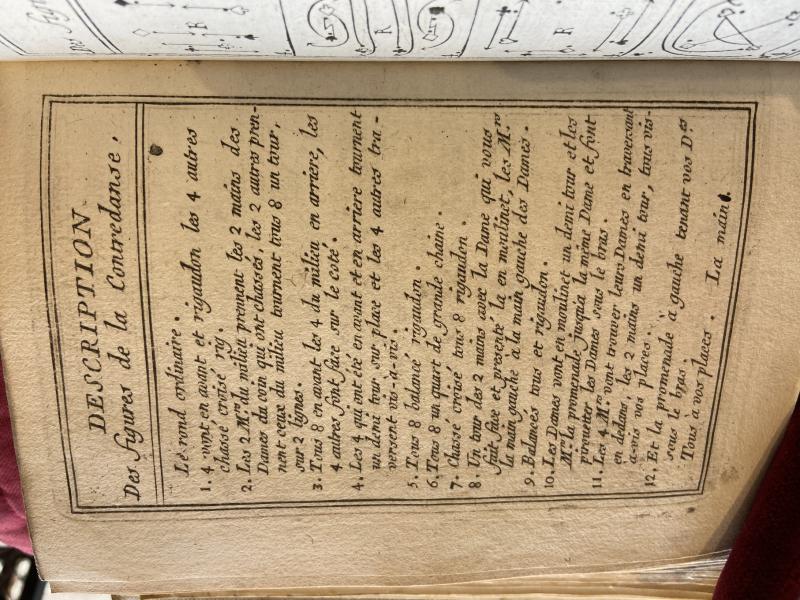 DESCRIPTION
Des figures de la Contredanse.
Le rond ordinaire.
1. 4 vont en avant et rigaudon les 4 autres
chassé croisé rig.
2. Les 2 Mrs. du milieu prennent les 2 mains des
Dames du coin qui ont chassés, les 2 autres pren-
nent ceux du milieu tournent tous 8 un tour,
sur 2 lignes.
3. Tous 8 en avant les 4 du milieu en arriere, les
4 autres font face sur le coté.
4. Les 4 qui ont été en avant et en arriere tournent
un demi tour sur place et les 4 autres tra-
versent vis-a-vis.
5. Tous 8 balancé rigaudon.
6. Tous 8 un quart de grande chaine.
7. Chassé croisé tous 8 rigaudon.
8. Un tour des 2 mains avec la Dame qui vous
fait face et presenté la en moulinet, les Mrs
la main gauche à la main gauche des Dames.
9. Balancés tous et rigaudon.
10. Les Dames vont en moulinet un demi tour et les
Mrs la promenade jusqu'à la même Dame et font
pirouetter les Dames sous le bras.
11. Les 4 Mrs vont trouver leurs Dames en traversant
en dedans, les 2 mains un demi tour, tous vis-
a-vis vos places.
12. Et la promenade à gauche tenant vos D.es
sous le bras.
Tous à vos places. La main.